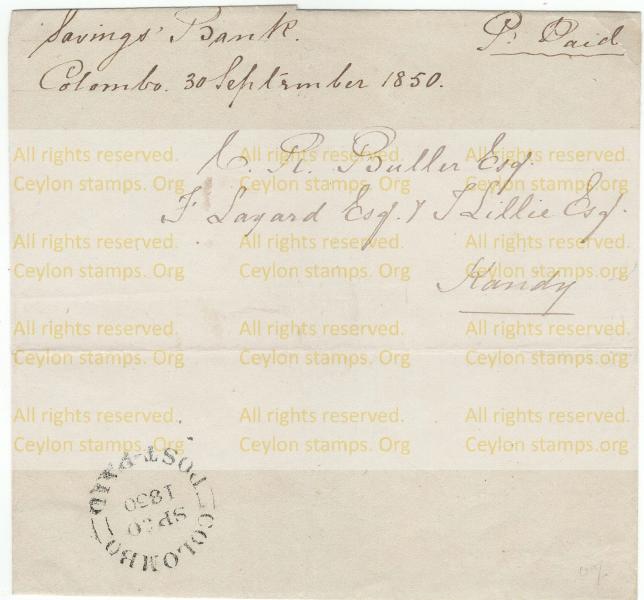 Savings' Bank. Pt Paid
Colombo. 30 September 1850.
C. R. Buller Esq.
F Layard Esq. & J Lillie Esq.
Kandy
All rights reserved. All rights reserved. All rights reserved.
Ceylon stamps. Org Ceylon stamps. Org Ceylon stamps. Org
All rights reserved. All rights reserved. All rights reserved.
Ceylon stamps. Org Ceylon stamps. Org Ceylon stamps. Org
All rights reserved. All rights reserved. All rights reserved.
Ceylon stamps. Org Ceylon stamps. Org Ceylon stamps. Org
All rights reserved. All rights reserved. All rights reserved.
Ceylon stamps. Org Ceylon stamps. Org Ceylon stamps. Org
COLOMBO
SP 30
1850
POST-PAID